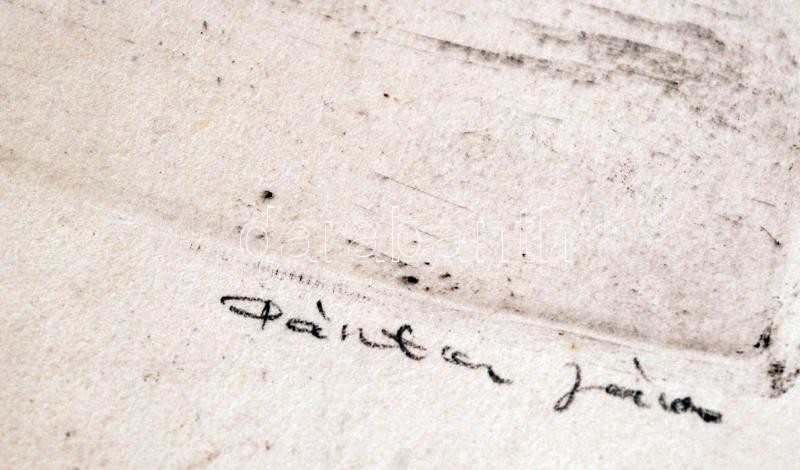 darabanth
Pántor János